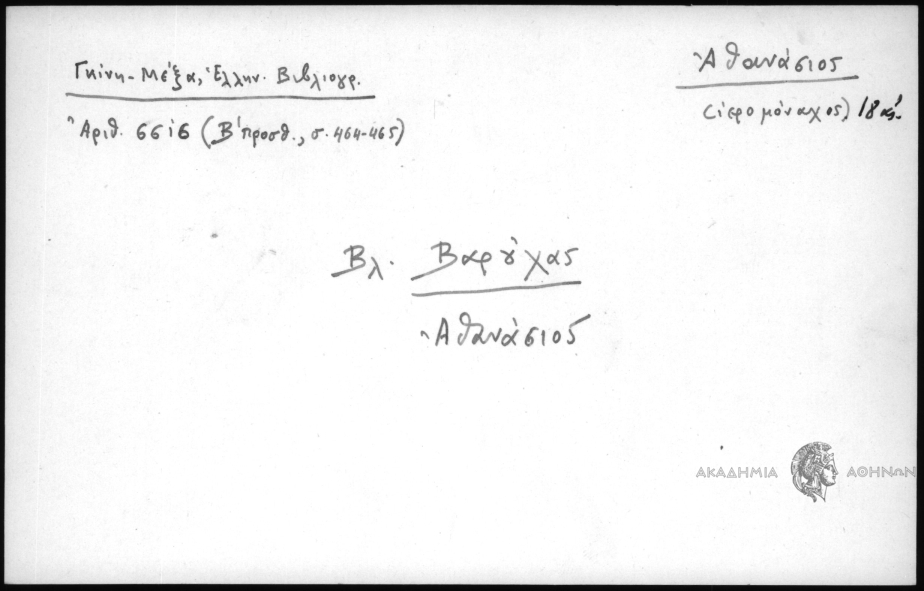 Γκίνη-Μέξα, Ἑλλην. Βιβλιογρ.
Ἀριθ. 6616 (Β' προσθ., σ. 464-465)
Ἀθανάσιος
(ἱερομόναχος), 18 αἰ.
Βλ. Βαρούχας
Ἀθανάσιος
ΑΚΑΔΗΜΙΑ ΑΘΗΝΩΝ